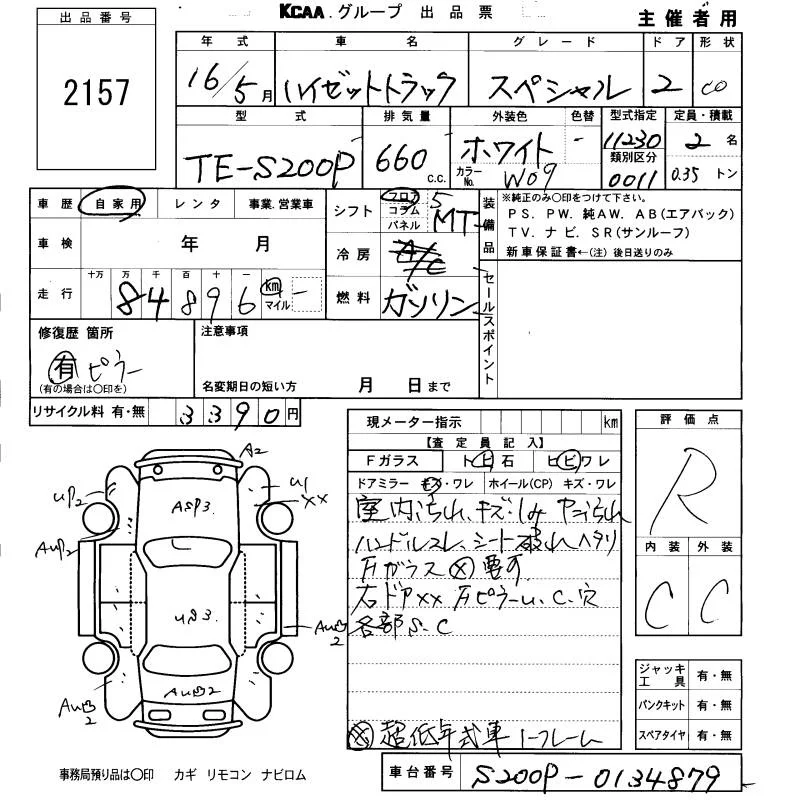 KCAA.グループ 出品票
主催者用
出品番号
2157
年式 車名 グレード ドア 形状
16/5月 ハイゼットトラック スペシャル 2 CO
型式 排気量 外装色 色替 型式指定 定員・積載
TE-S200P 660 c.c. ホワイト - 11230 2名
カラーNo. W09 類別区分 0011 0.35トン
車歴 自家用 レンタ 事業.営業車
シフト フロア コラム パネル 5 MT
装備品
※純正のみ○印をつけて下さい。
PS. PW. 純AW. AB(エアバック)
TV. ナビ. SR(サンルーフ)
新車保証書←(注) 後日送りのみ
車検 年 月
冷房 A/C
走行 十万 万 千 百 十 一
84896 km マイル -
燃料 ガソリン
セールスポイント
修復歴 箇所
有 ピラー
(有の場合は○印を)
注意事項
名変期日の短い方 月 日まで
リサイクル料 有・無 3390円
現メーター指示 km
【査定員記入】
Fガラス トビ石 ヒビワレ
ドアミラー キズ・ワレ ホイール(CP) キズ・ワレ
室内汚れ、キズ・しみ ヤニ汚れ
ハンドルスレ、シート破れヘタリ
Fガラス ⊗ 要可
右ドアXX Fピラーu、C、穴
各部S.C
⊗ 超低年式車 1-フレーム
評価点
R
内装 外装
C C
ジャッキ工具 有・無
パンクキット 有・無
スペアタイヤ 有・無
A2
UP2
U1
XX
ASP3
AUP2
US3
AU凹2
AU凹2
AU凹2
事務局預り品は○印 カギ リモコン ナビロム
車台番号 S200P-0134879